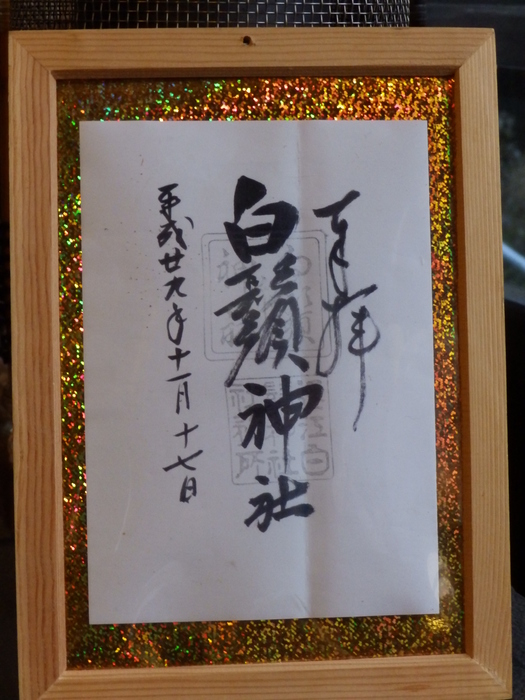 奉拝
白鬚神社
平成廿九年十一月十七日